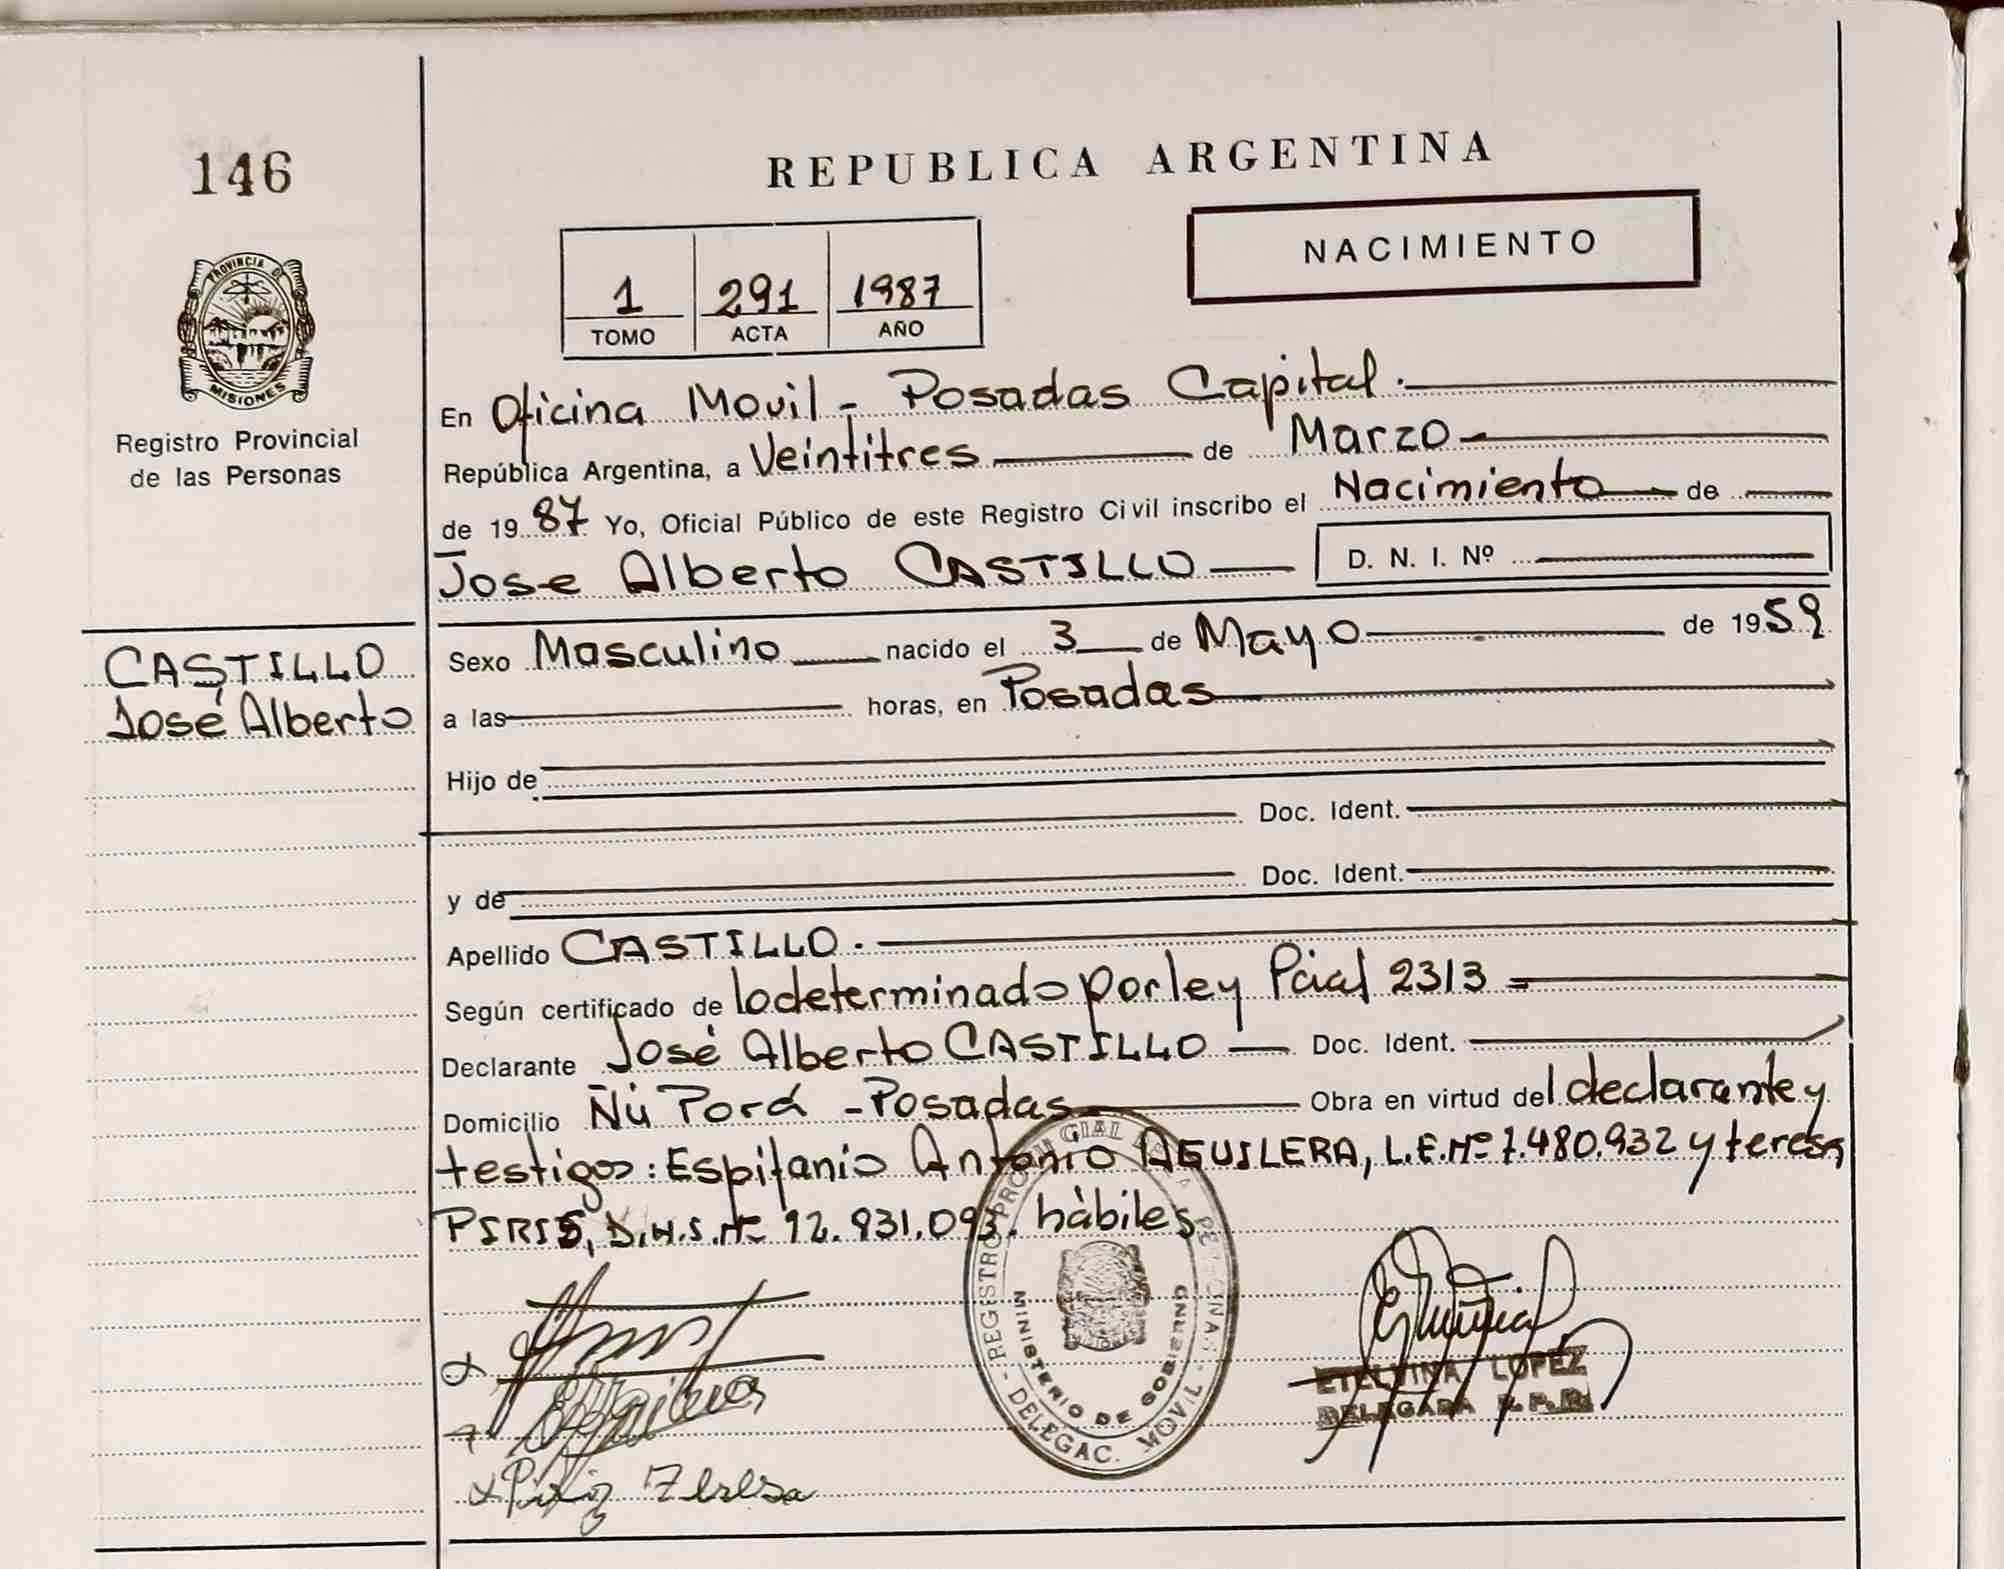 146
REPUBLICA ARGENTINA
NACIMIENTO
1 291 1987
TOMO ACTA AÑO
PROVINCIA DE
MISIONES
Registro Provincial
de las Personas
En Oficina Movil - Posadas Capital.
República Argentina, a Veintitres de Marzo
de 1987 Yo, Oficial Público de este Registro Civil inscribo el Nacimiento de
Jose Alberto CASTILLO D. N. I. Nº
CASTILLO
José Alberto
Sexo Masculino nacido el 3 de Mayo de 1959
a las horas, en Posadas
Hijo de
Doc. Ident.
y de Doc. Ident.
Apellido CASTILLO.
Según certificado de lo determinado por ley Pcial 2313
Declarante José Alberto CASTILLO Doc. Ident.
Domicilio Ñú Porá - Posadas Obra en virtud del declarante y
testigos: Espifanio Antonio AGUILERA, L.E.Nº 7.480.932 y teresa
PIRIS, D.N.I. Nº 12.931.093. hàbiles
REGISTRO PROVINCIAL DE LAS PERSONAS - DELEGAC. MOVIL -
MINISTERIO DE GOBIERNO
ETELVINA LOPEZ
DELEGADA R.P.P.
Piriz Teresa